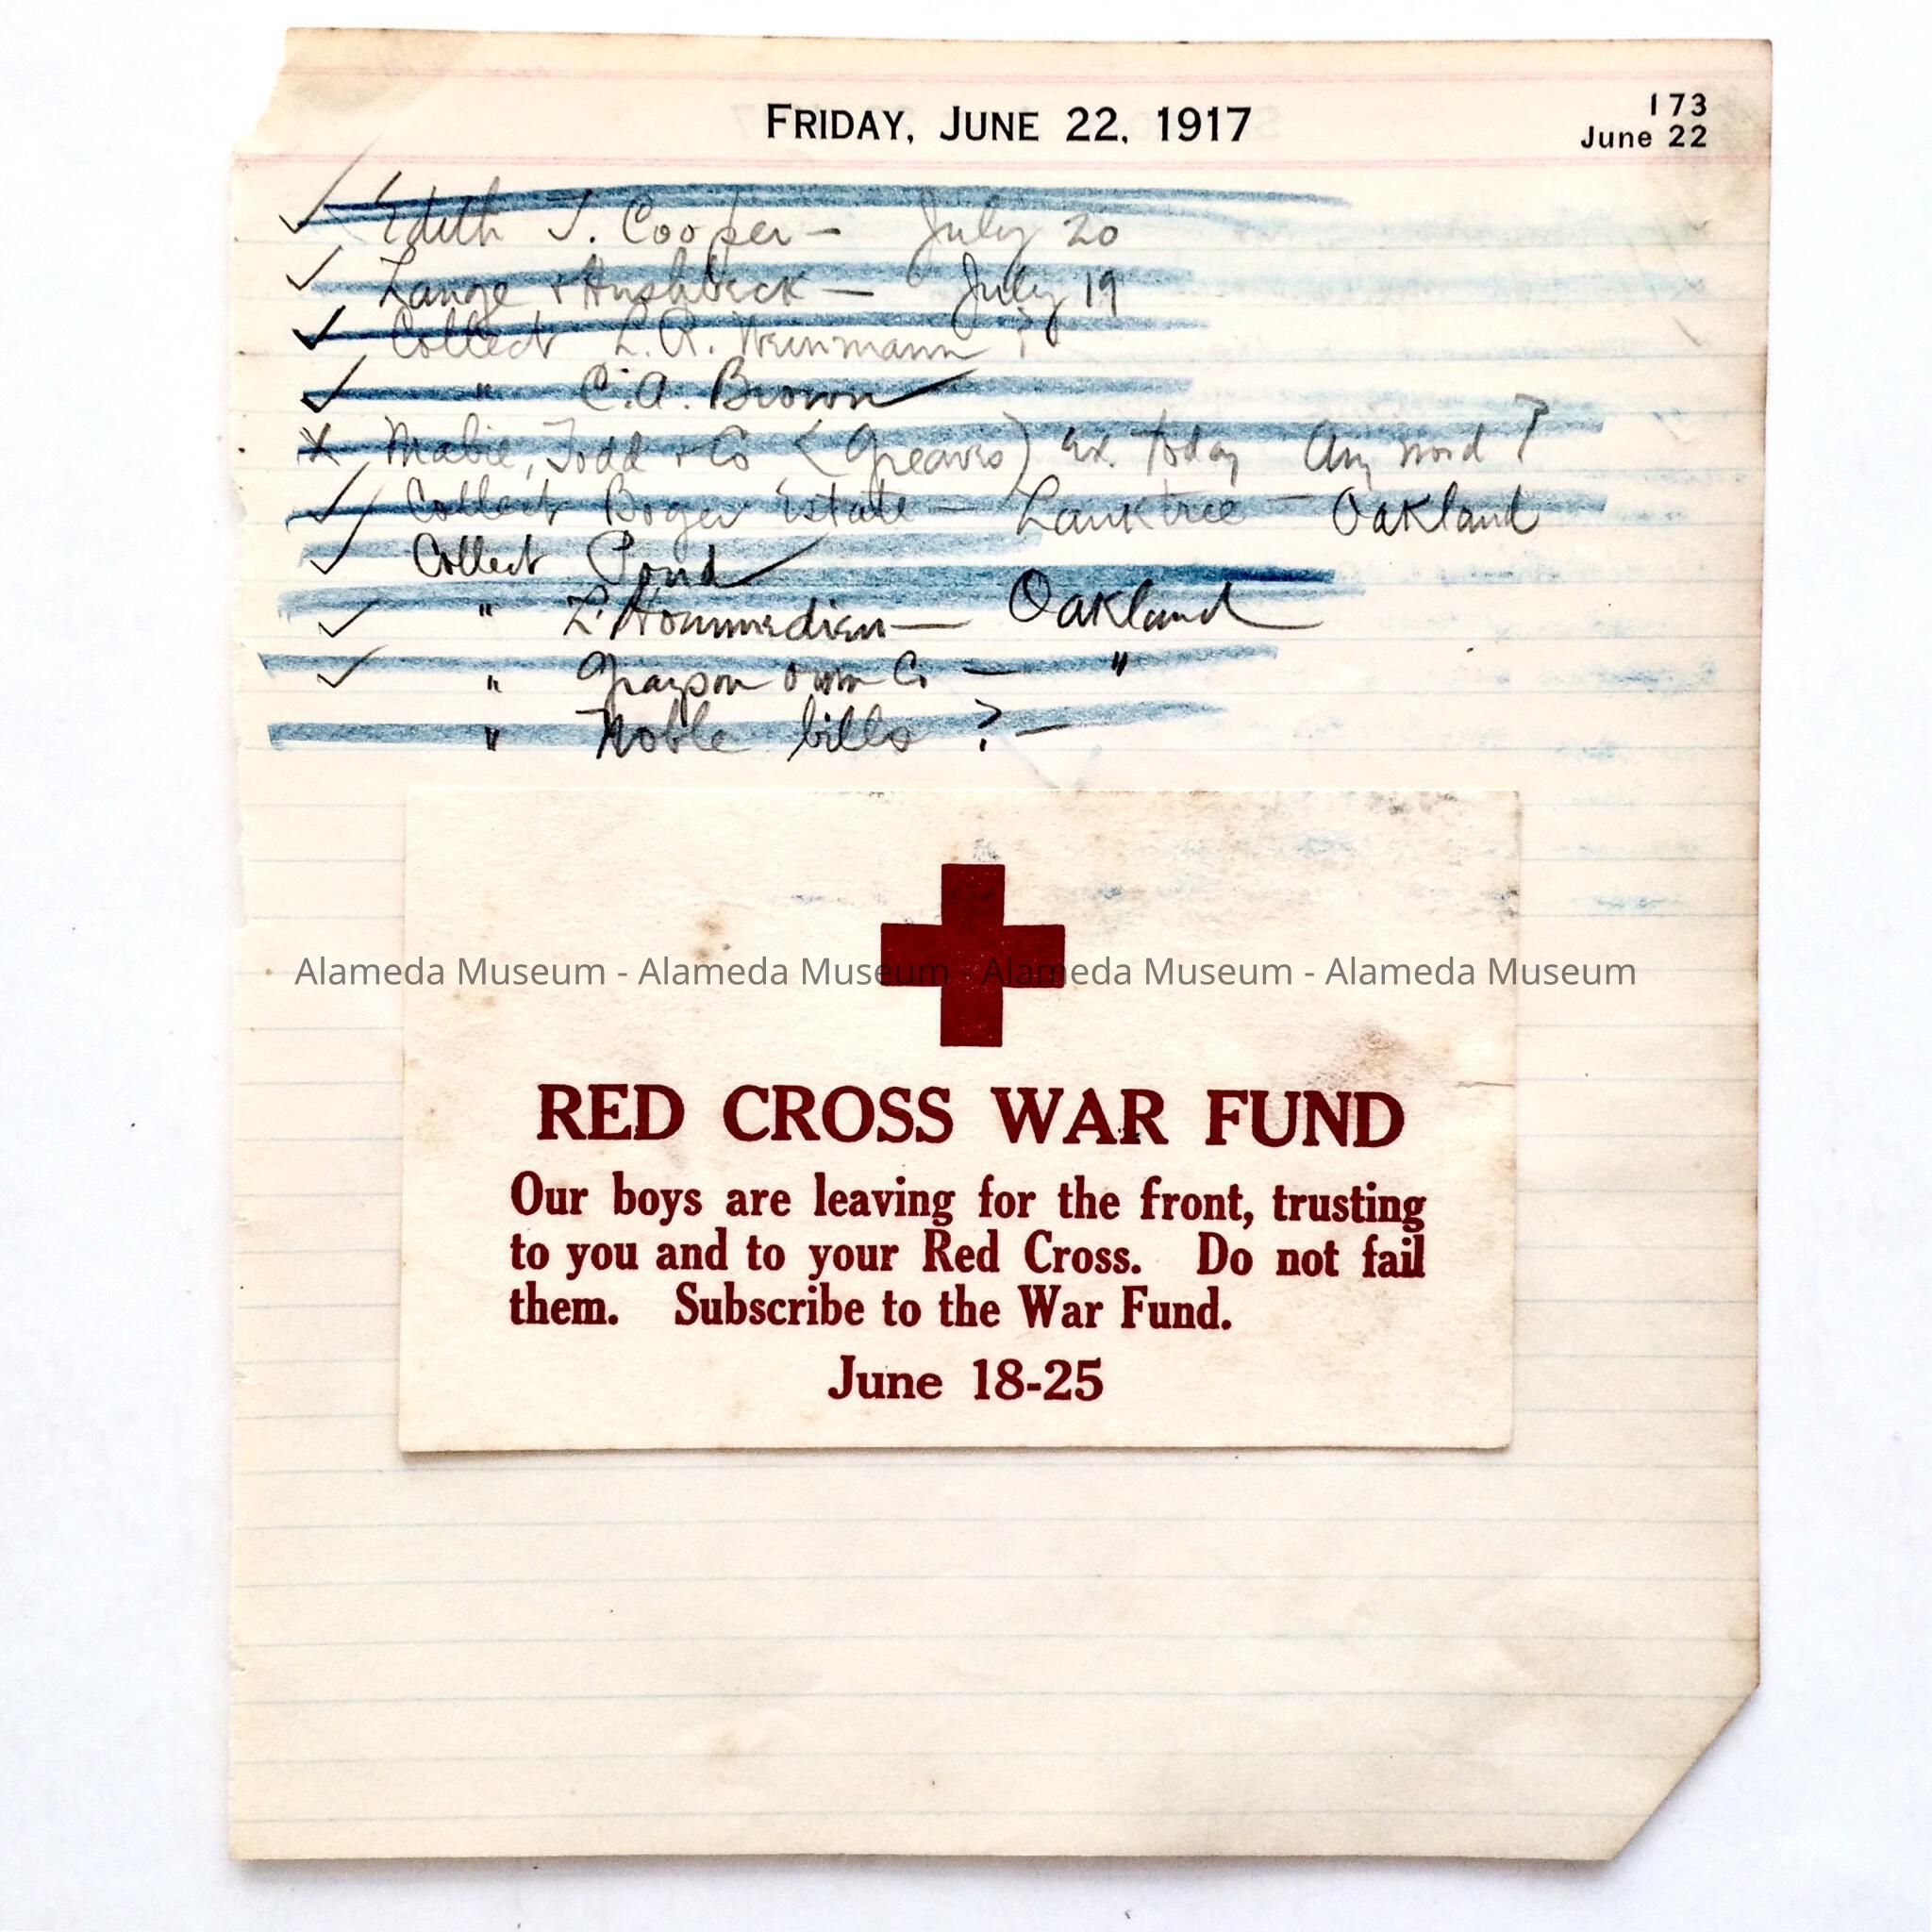 FRIDAY, JUNE 22, 1917
173
June 22
Edith J. Cooper — July 20
Lange + — July 19
Collect L. A. Weinmann ?
" C. A. Brown
Mabie, Todd + Co (Greaves) ex. today Any word ?
Collect Boger Estate — Lanktree — Oakland
Collect Pond
" L'Hommedieu — Oakland
" Grayson Owen Co — "
" Noble bills ? —
Alameda Museum - Alameda Museum - Alameda Museum - Alameda Museum
RED CROSS WAR FUND
Our boys are leaving for the front, trusting
to you and to your Red Cross. Do not fail
them. Subscribe to the War Fund.
June 18-25